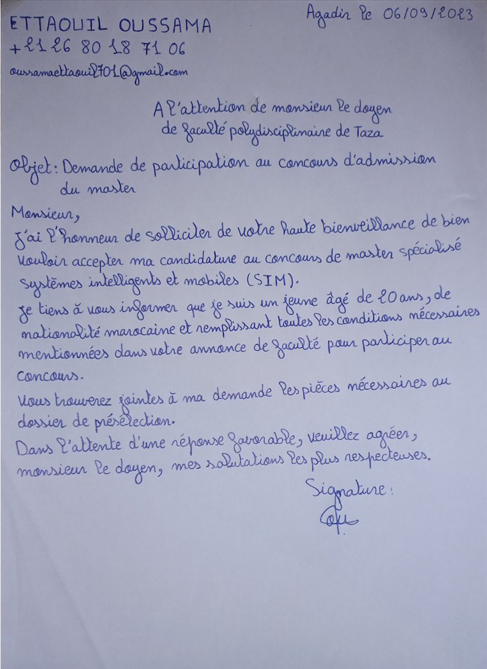 ETTAOUIL OUSSAMA
Agadir le 06/09/2023
+2126 80 18 71 06
oussamaettaouil701@gmail.com
A l'attention de monsieur le doyen
de faculté polydisciplinaire de Taza
Objet: Demande de participation au concours d'admission
du master
Monsieur,
J'ai l'honneur de solliciter de votre haute bienveillance de bien
vouloir accepter ma candidature au concours de master spécialisé
systèmes intelligents et mobiles (SIM).
Je tiens à vous informer que je suis un jeune âgé de 20 ans, de
nationalité marocaine et remplissant toutes les conditions nécessaires
mentionnées dans votre annonce de faculté pour participer au
concours.
Vous trouverez jointes à ma demande les pièces nécessaires au
dossier de présélection.
Dans l'attente d'une réponse favorable, veuillez agréer,
monsieur le doyen, mes salutations les plus respecteuses.
Signature: